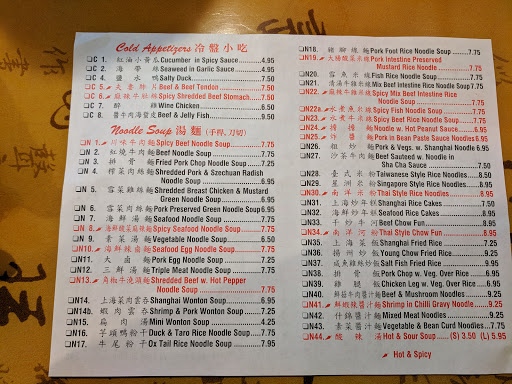 Cold Appetizers 冷盤小吃
C 1. 紅油小黃瓜 Cucumber in Spicy Sauce 4.95
C 2. 海帶絲 Seaweed in Garlic Sauce 4.95
C 4. 鹽水鴨 Salty Duck 7.50
C 5. 夫妻肺片 Beef & Beef Tendon 7.50
C 6. Spicy Shredded Beef Stomach 7.50
C 7. 醉雞 Wine Chicken 6.50
C 8. Beef & Jelly Fish 9.50
Noodle Soup 湯麵 (手桿, 刀切)
N 1. 川味牛肉麵 Spicy Beef Noodle Soup 7.75
N 2. 紅燒牛肉麵 Beef Noodle Soup 7.75
N 3. 排骨麵 Fried Pork Chop Noodle Soup 7.25
N 4. 榨菜肉絲麵 Shredded Pork & Szechuan Radish
Noodle Soup 6.95
N 5. 雪菜雞絲麵 Shredded Breast Chicken & Mustard
Green Noodle Soup 6.95
N 6. 雪菜肉絲麵 Pork Preserved Green Noodle Soup 6.95
N 7. 海鮮湯麵 Seafood Noodle Soup 7.75
N 8. Spicy Seafood Noodle Soup 7.75
N 9. 素菜湯麵 Vegetable Noodle Soup 6.50
N10. Seafood Egg Noodle Soup 7.75
N11. 大滷麵 Pork Egg Noodle Soup 7.25
N12. 三鮮湯麵 Triple Meat Noodle Soup 7.75
N13. Shredded Beef w. Hot Pepper
Noodle Soup 7.75
N14. 上海菜肉雲吞 Shanghai Wonton Soup 6.95
N14b. 蝦肉雲吞 Shrimp & Pork Wonton Soup 7.25
N15. 扁肉湯 Mini Wonton Soup 4.25
N16. 芋頭鴨粉干 Duck & Taro Rice Noodle Soup 7.75
N17. 牛尾粉干 Ox Tail Rice Noodle Soup 7.75
N18. Pork Foot Rice Noodle Soup 7.75
N19. Pork Intestine Preserved
Mustard Rice Noodle 7.25
N20. 雪魚米線 Fish Rice Noodle Soup 7.75
N21. Mix Beef Intestine Rice Noodle Soup 7.25
N22. Spicy Mix Beef Intestine Rice
Noodle Soup 7.25
N22a. 水煮魚米線 Spicy Fish Noodle Soup 7.75
N23. 水煮牛米線 Spicy Beef Rice Noodle Soup 7.75
N24. Noodle w. Hot Peanut Sauce 6.95
N25. 炸醬麵 Pork in Bean Paste Sauce Noodles 6.95
N26. 粗炒麵 Pork & Vegs. w. Shanghai Noodle 6.95
N27. 沙茶牛肉麵 Beef Sauteed w. Noodle in
Sha Cha Sauce 7.50
N28. 臺式米粉 Taiwanese Style Rice Noodles 8.50
N29. 星洲米粉 Singapore Style Noodles 8.95
N30. 南洋米粉 Thai Style Rice Noodles 8.95
N31. 上海炒年糕 Shanghai Rice Cakes 7.50
N32. 海鮮炒年糕 Seafood Rice Cakes 8.95
N33. 干炒牛河 Beef Chow Fun 8.95
N34. 南洋河粉 Thai Style Chow Fun 8.95
N35. 上海菜飯 Shanghai Fried Rice 7.25
N36. 揚州炒飯 Young Chow Fried Rice 9.25
N37. Salt Fish Fried Rice 9.95
N38. 排骨飯 Pork Chop w. Veg. Over Rice 6.95
N39. 雞腿飯 Chicken Leg w. Veg. Over Rice 6.95
N40. 鮮菇牛肉燴飯 Beef & Mushroom Noodles 9.25
N41. Shrimp in Chilli Gravy Noodle 9.25
N42. 什錦醬汁麵 Mixed Meat Noodles 9.25
N43. 素菜醬汁麵 Vegetable & Bean Curd Noodles 7.95
N44. 酸辣湯 Hot & Sour Soup (S) 3.50 (L) 5.95
Hot & Spicy